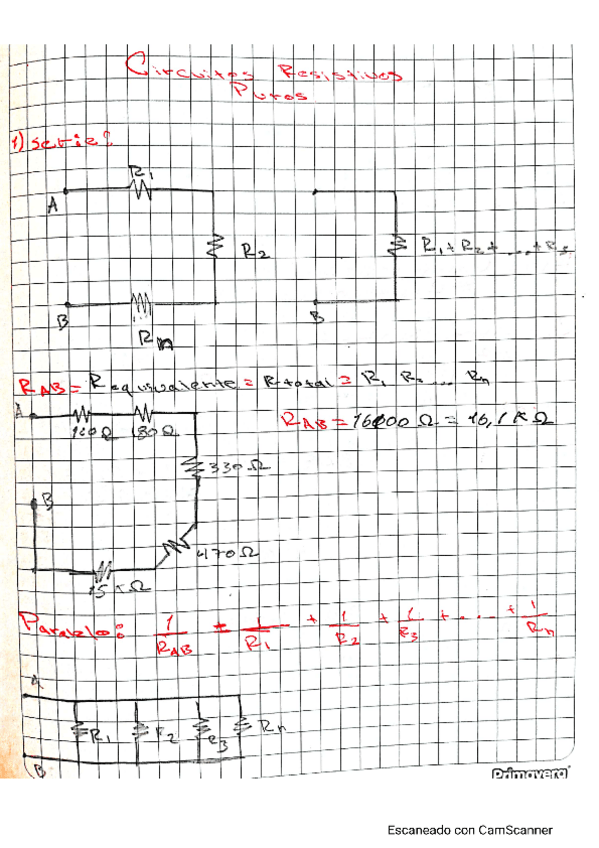 Circuitos Resistivos
Puros
1) serie:
R1
A
R2
R1 + R2 + ... + R3
B
B
Rn
RAB = Requivalente = Rtotal = R1 R2 ... Rn
A
100Ω 180Ω
RAB = 16100 Ω = 16,1 KΩ
330Ω
B
470Ω
15 KΩ
Paralelo: 1/RAB = 1/R1 + 1/R2 + 1/R3 + ... + 1/Rn
A
R1 R2 R3 Rn
B
Primavera
Escaneado con CamScanner